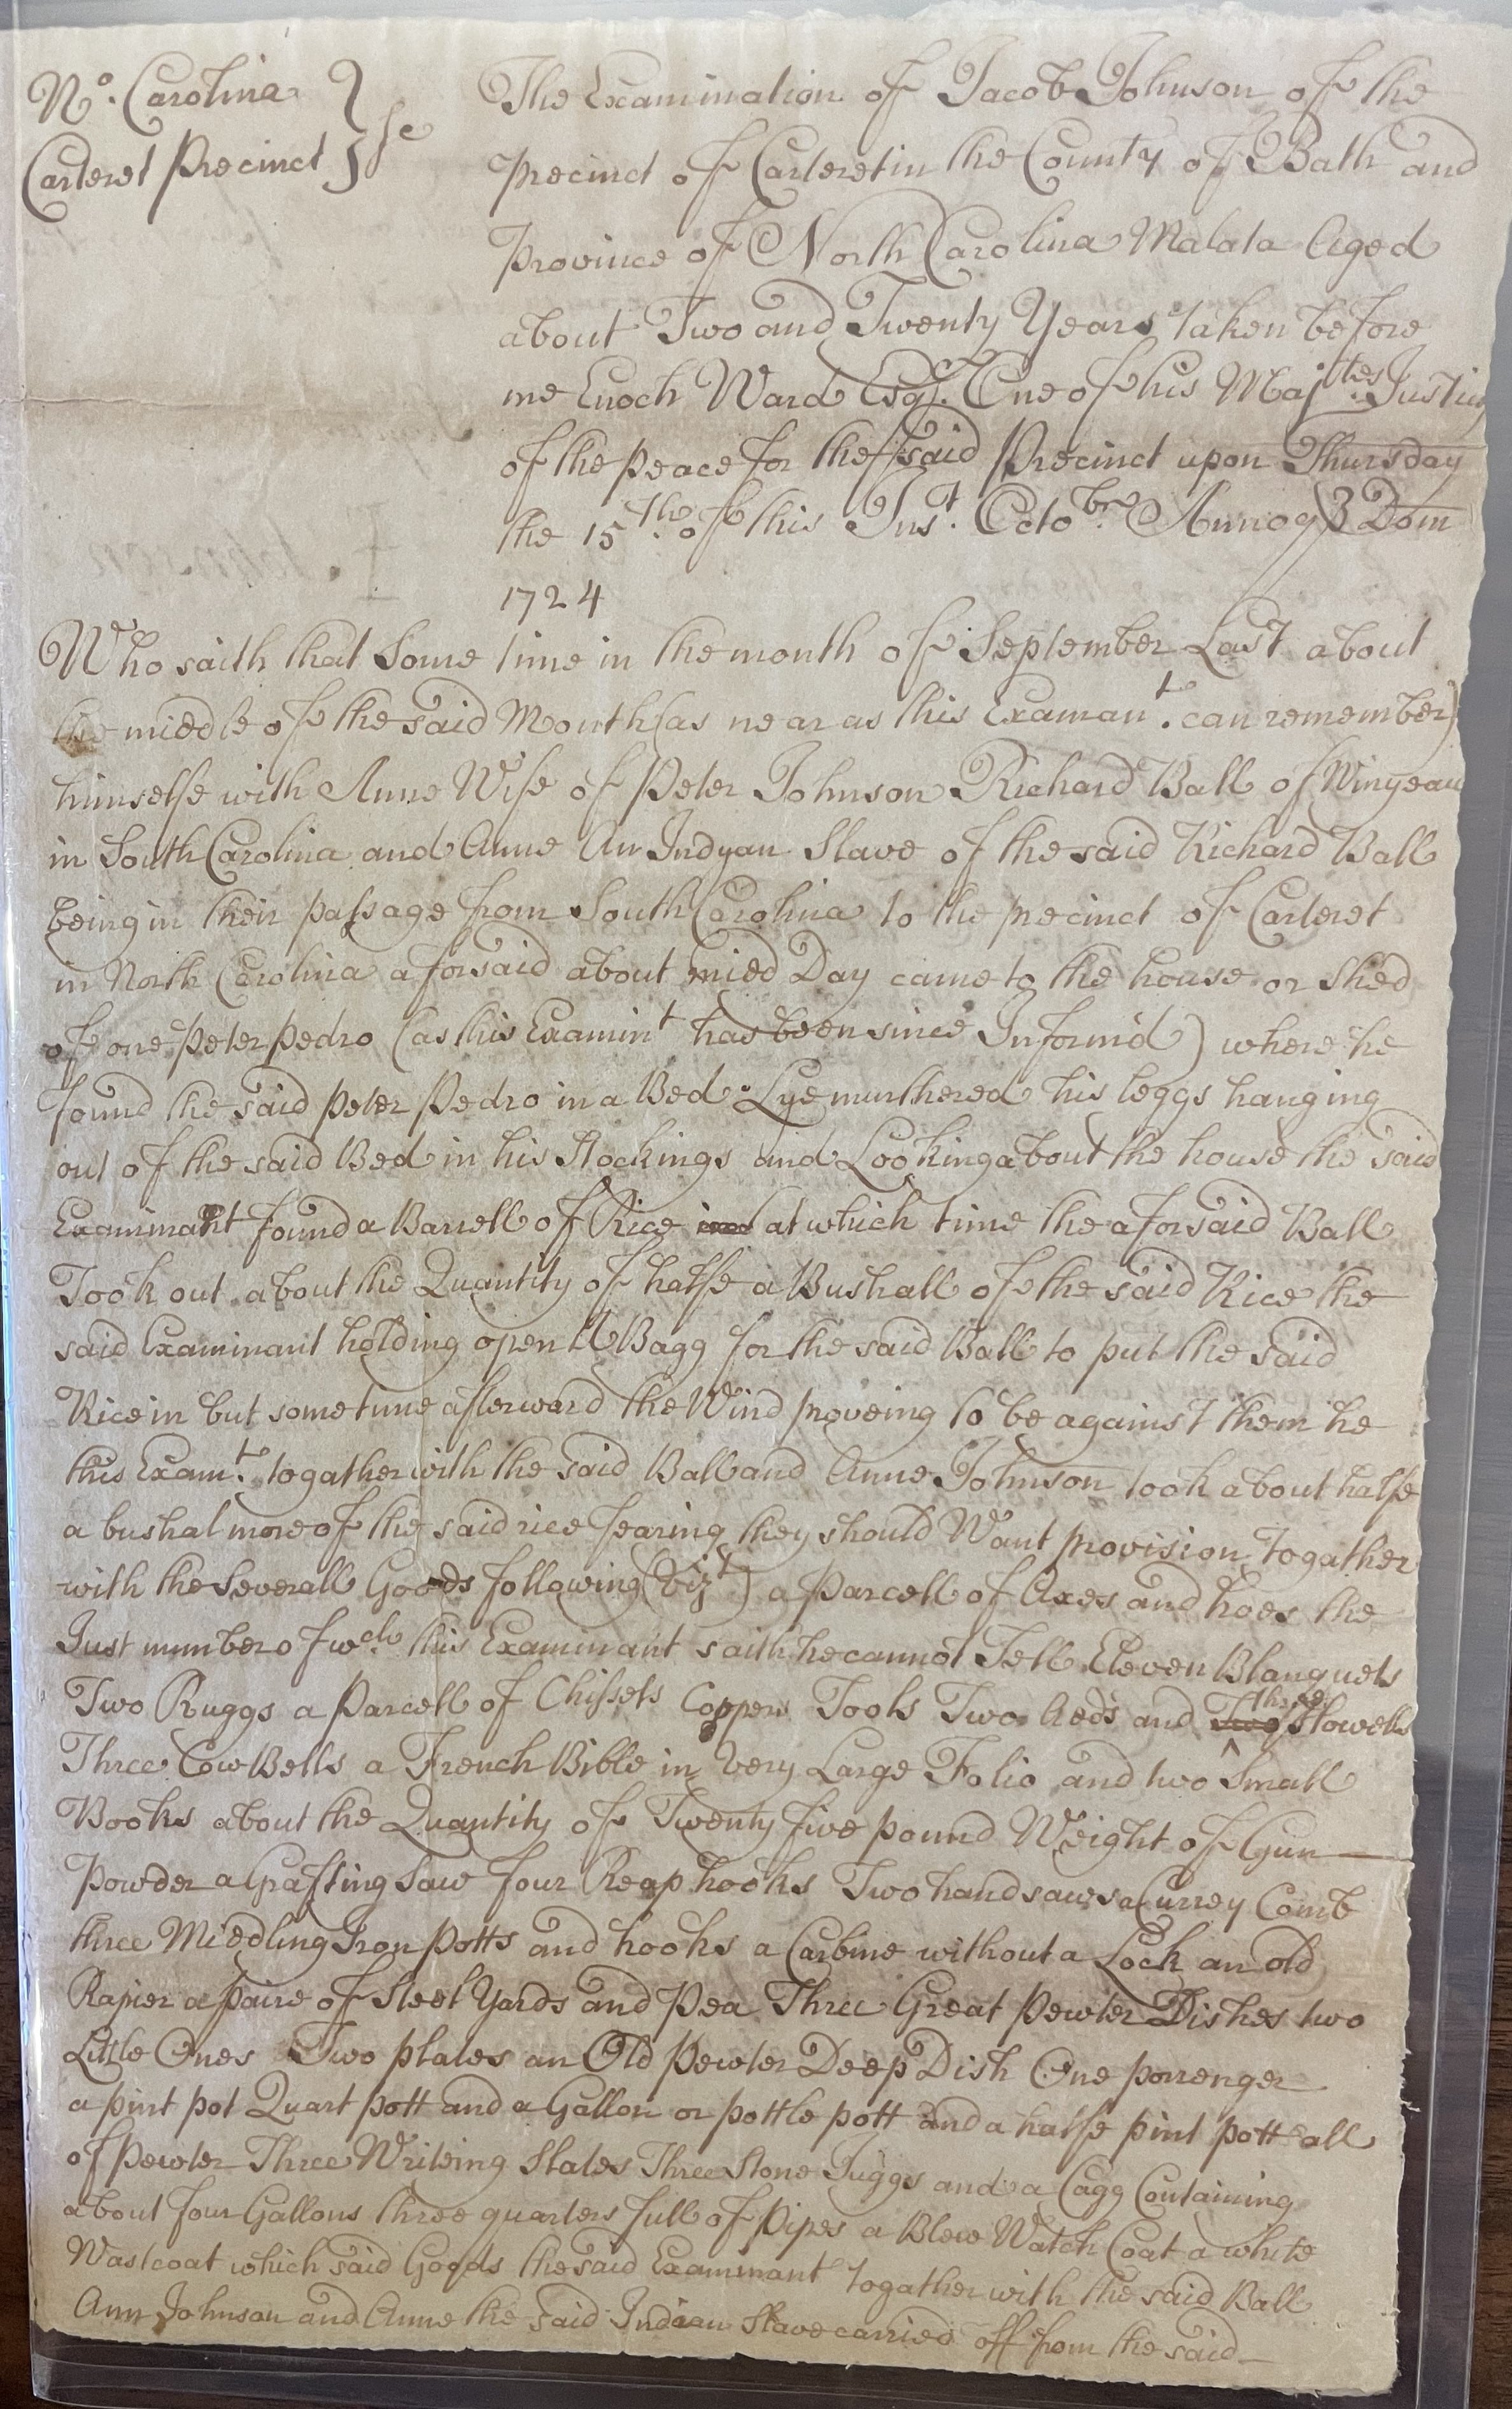 No. Carolina } sc
Carteret Precinct }
The Examination of Jacob Johnson of the
Precinct of Carteret in the County of Bath and
Province of North Carolina Malata Aged
about Two and Twenty Years taken before
me Enoch Ward Esqr. One of his Majtes. Justices
of the peace for the said Precinct upon Thursday
the 15th. of this Inst. Octobr. Annoq Dom
1724
Who saith that Some time in the month of September Last about
the middle of the said Month (as near as this Examant. can remember)
himselfe with Anne Wife of Peter Johnson Richard Ball of Winyeau
in South Carolina and Anne An Indyan Slave of the said Richard Ball
being in their passage from South Carolina to the precinct of Carteret
in North Carolina aforsaid about mied Day came to the house or Shed
of one Peter Pedro (as this Examint has been since Informd) where he
found the said Peter Pedro in a Bed Lye murthered his leggs hanging
out of the said Bed in his Stockings and Looking about the house the said
Examinant found a Barrell of Rice at which time the aforsaid Ball
Took out about the Quantity of halfe a Bushall of the said Rice the
said Examinant holding open A Bagg for the said Ball to put the said
Rice in but sometime afterward the Wind proveing to be against them he
this Examt. togather with the said Ball and Anne Johnson took about halfe
a bushal more of the said rice fearing they should Want provision togather
with the Severall Goods following (Vizt) a Parcell of Axes and hoes the
Just number of wch. this Examinant saith he cannot Tell Eleven Blanquets
Two Ruggs a Parcell of Chissels Coppers Tools Two Aeds and Two three Howells
Three Cow Bells a French Bible in Very Large Folio and two Small
Books about the Quantity of Twenty five pound Weight of Gun
Powder a Grafting Saw four Reap hooks Two handsaws a Currey Comb
three Miedling Iron Potts and hooks a Carbine without a Lock an old
Rapier a paire of Steel Yards and Pea Three Great Pewter Dishes two
Little Ones Two plates an Old Pewter Deep Dish One porrenger
a pint pot Quart pott and a Gallon or pottle pott and a halfe pint pott all
of Pewter Three Writeing Slates Three Stone Juggs and a Cagg Containing
about four Gallons three quarters full of Pipes a Blew Watch Coat a white
Wastcoat which said Goods the said Examinant togather with the said Ball
Ann Johnson and Anne the said Indian Slave carried off from the said